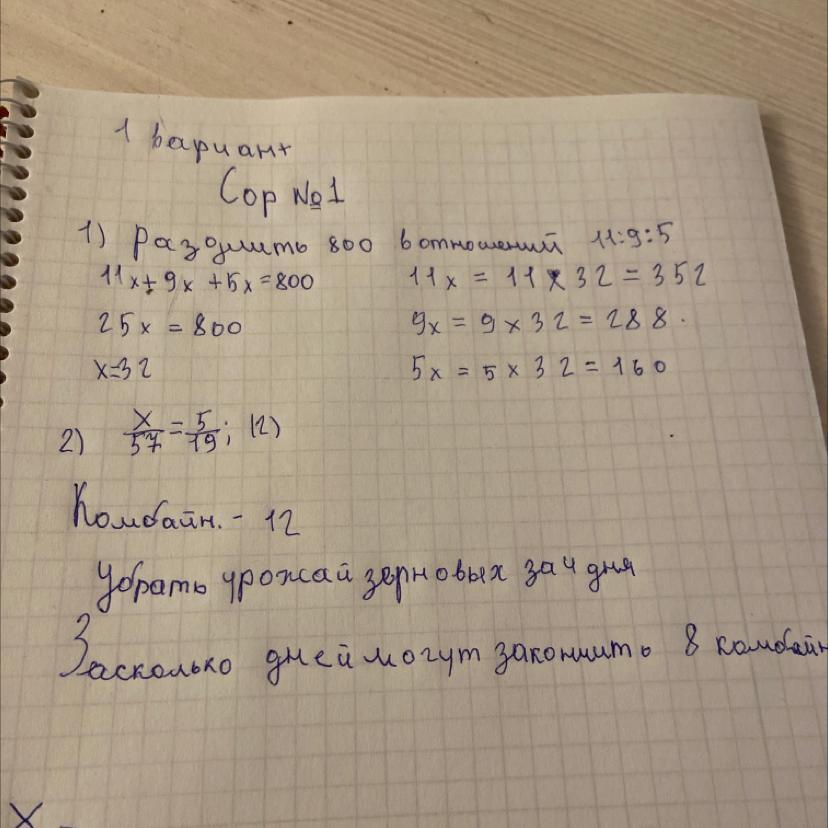 1 вариант
Сор №1
1) Разделить 800 в отношений 11:9:5
11x+9x+5x=800 11x = 11 x 32 = 352
25x = 800 9x = 9 x 32 = 288.
x=32 5x = 5 x 32 = 160
2) x/57 = 5/19; (2)
Комбайн. - 12
Убрать урожай зерновых за 4 дня
Засколько дней могут закончить 8 комбайн
X